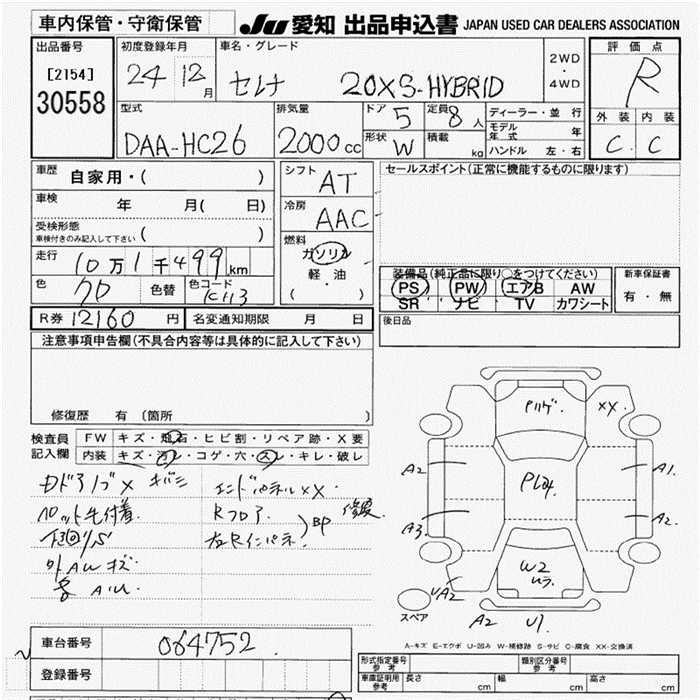 車内保管・守衛保管 JU 愛知 出品申込書 JAPAN USED CAR DEALERS ASSOCIATION
出品番号 初度登録年月 車名・グレード 2WD・4WD 評価点
[2154] 24 12月 セレナ 20XS-HYBRID R
30558
型式 排気量 ドア 5 定員 8人 ディーラー・並行 外装 内装
DAA-HC26 2000cc 形状 W 積載 kg モデル年式 年 C C
ハンドル 左・右
車歴 自家用・( ) シフト AT セールスポイント(正常に機能するものに限ります)
車検 年 月( 日) 冷房 AAC
受検形態 車検付きのみ記入して下さい ( )
燃料 ガソリン 軽・油 ( ・ )
走行 10万1千499km
色 クロ 色替 色コード
装備品(純正品に限り○をつけてください) 新車保証書
PS PW エアB AW 有・無
SR ナビ TV カワシート
R券 12160円 名変通知期限 月 日 後日品
注意事項申告欄(不具合内容等は具体的に記入して下さい)
修復歴 有 (箇所 )
検査員記入欄 FW キズ・飛石・ヒビ割・リペア跡・X要
内装 キズ・汚レ・コゲ・穴・スレ・キレ・破レ
エンドパネルXX
Rフロア BP
外AWキズ
XX
A2 A1
A3 A2
W2
A2 U1
スペア
A-キズ E-エクボ U-凹み W-補修跡 S-サビ C-腐食 XX-交換済
車台番号 064752
登録番号
形式指定番号 参考 類別区分番号 参考
車庫証明用 参考 長さ cm 幅 cm 高さ cm